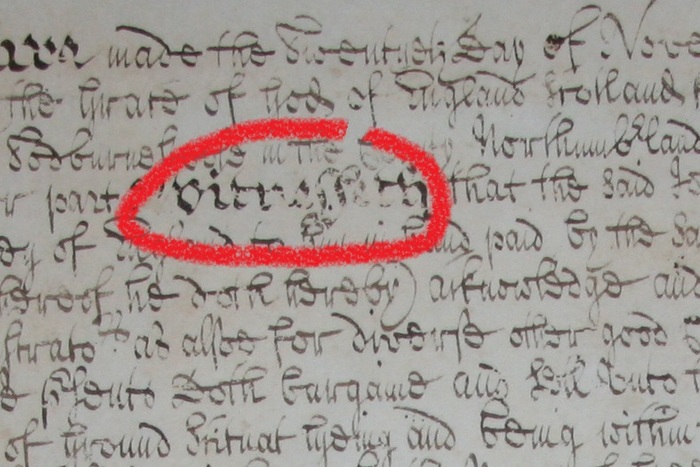 made the Twentyeth Day of Nove
the grace of God of England Scotland
in the County Northumbland
r part Witnesseth that the said
ey of England to him in hand paid by the Sa
hereof he doth hereby) acknowledge and
as alsoe for diverse other good
e psents Doth bargane and Sell unto
of Ground Scituat lyeing and being within